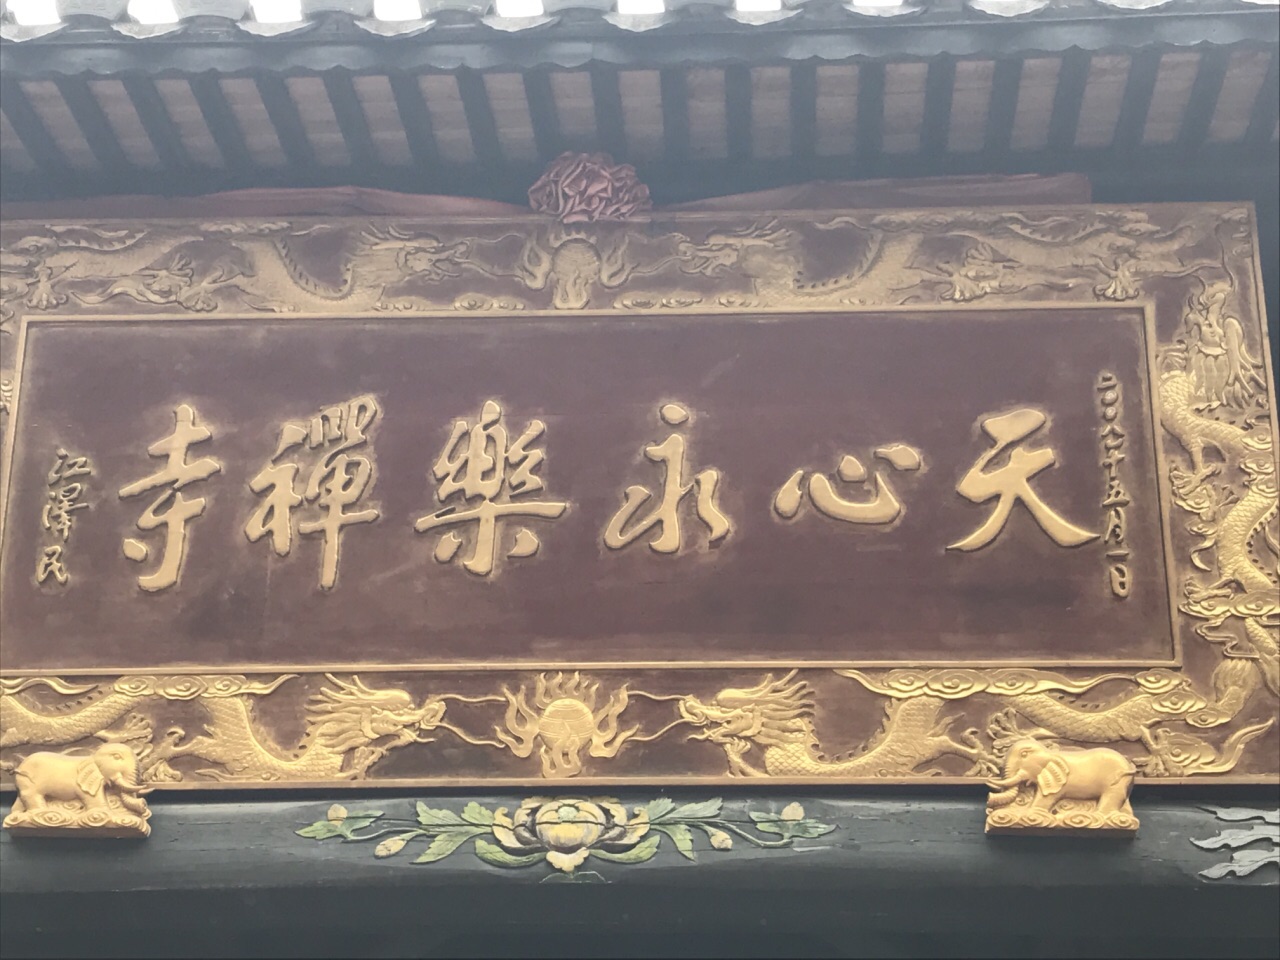 二〇〇八年五月一日
天心永樂禪寺
江澤民